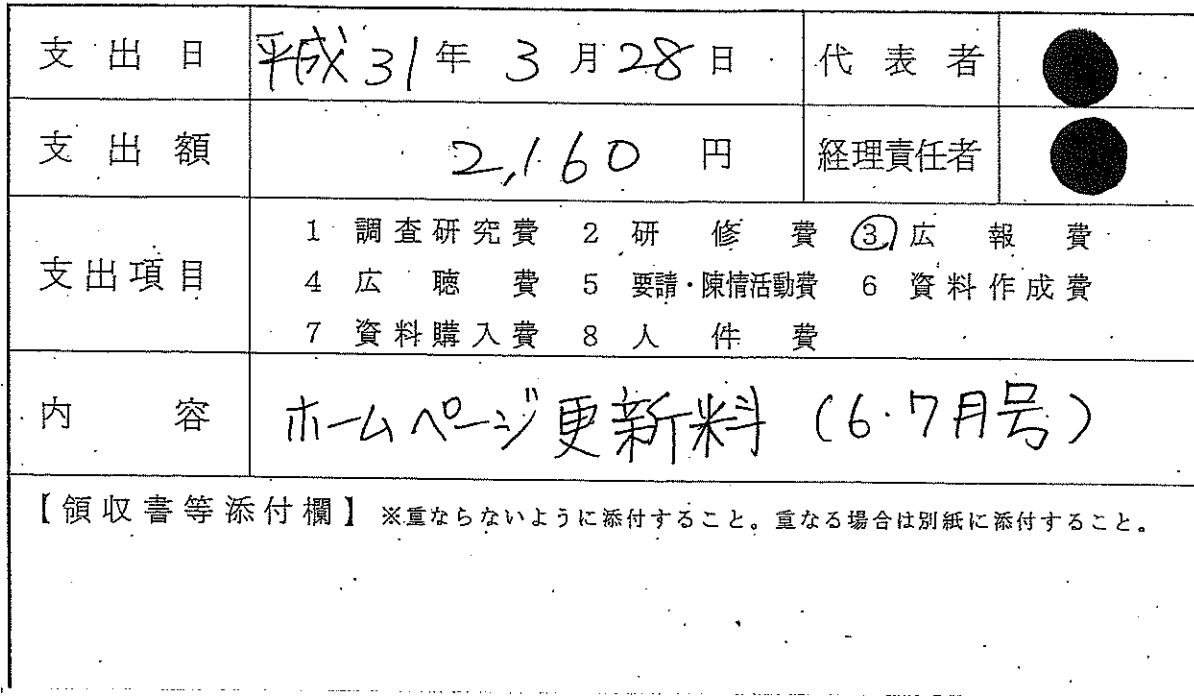 支出日 平成31年3月28日 代表者
支出額 2,160円 経理責任者
支出項目 1 調査研究費 2 研修費 3 広報費
4 広聴費 5 要請・陳情活動費 6 資料作成費
7 資料購入費 8 人件費
内容 ホームページ更新料(6・7月号)
【領収書等添付欄】※重ならないように添付すること。重なる場合は別紙に添付すること。